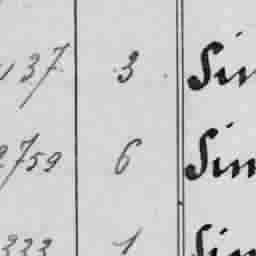 137 3 Sin
2759 6 Sim
333 1 Sim